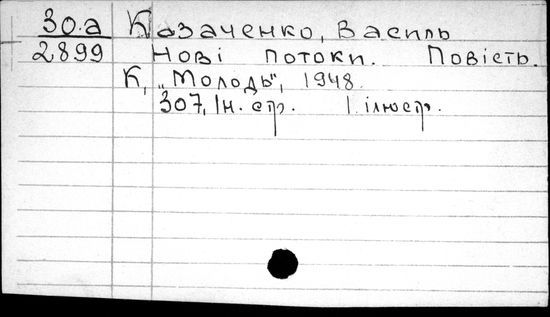 30.а Козаченко, Василь
2899 Нові потоки. Повість.
К, „Молодь", 1948.
307, Ін. стр. І. ілюстр.